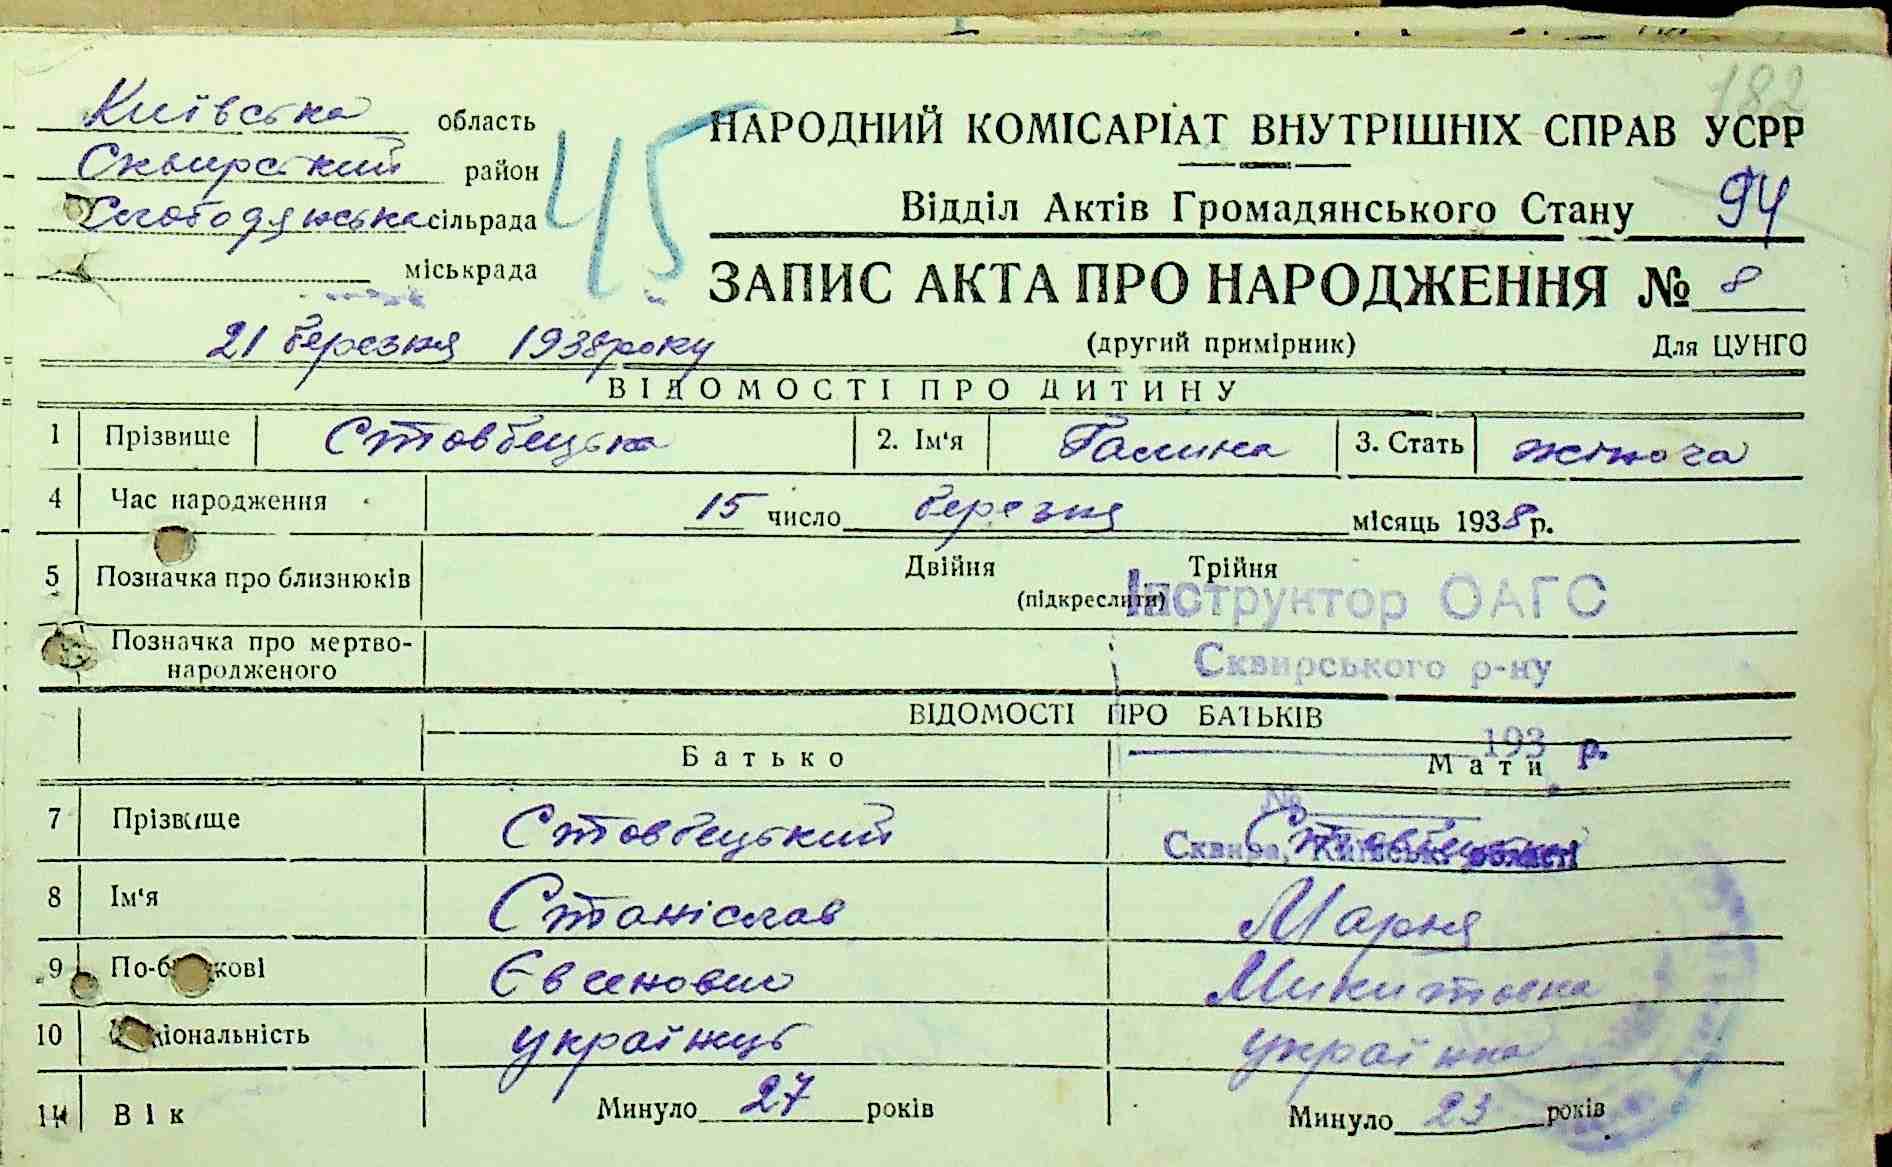 182
Київська область
Сквирський район
Слободянська сільрада
міськрада
45
НАРОДНИЙ КОМІСАРІАТ ВНУТРІШНІХ СПРАВ УСРР
Відділ Актів Громадянського Стану 94
ЗАПИС АКТА ПРО НАРОДЖЕННЯ № 8
21 березня 1938 року (другий примірник) Для ЦУНГО
ВІДОМОСТІ ПРО ДИТИНУ
1 Прізвище Стовбецька 2. Ім'я Галина 3. Стать жіноча
4 Час народження 15 число березня місяць 1938 р.
5 Позначка про близнюків Двійня Трійня
(підкреслити)
Інструктор ОАГС
Позначка про мертво-
народженого
Сквирського р-ну
ВІДОМОСТІ ПРО БАТЬКІВ
193 р.
Батько Мати
№
7 Прізвище Стовбецький Стовбецька
Сквира, Київської області
8 Ім'я Станіслав Марія
9 По-б кові Євсенович Микитовна
10 іональність українець українка
11 Вік Минуло 27 років Минуло 23 років